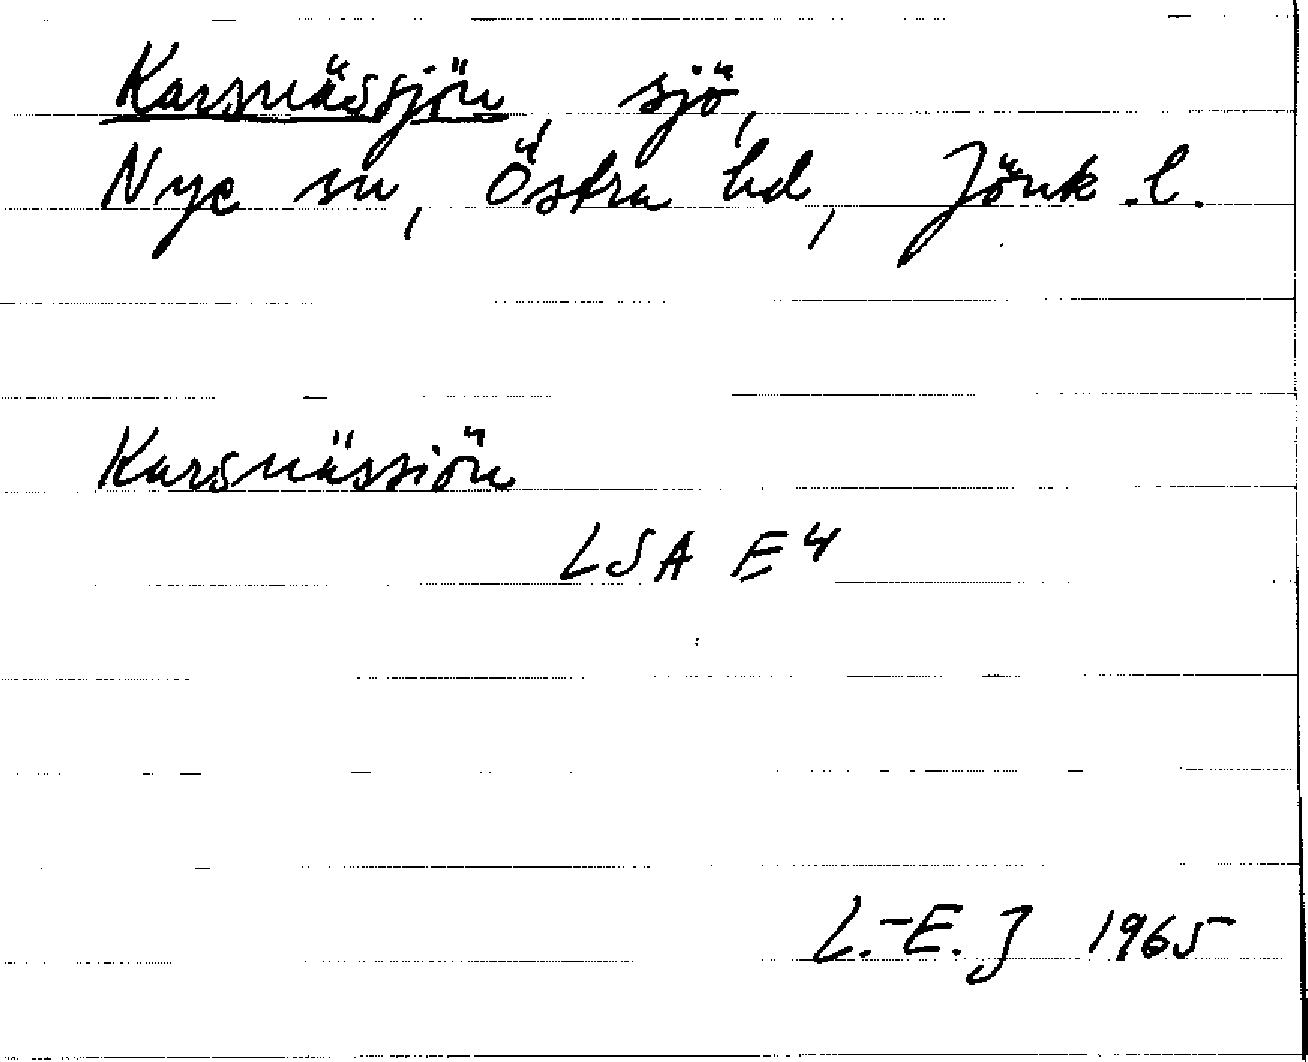 Karsnässjön, sjö,
Nye sn, Östra hd, Jönk.l.
Karsnässiön
LSA E4
L.-E.J 1965